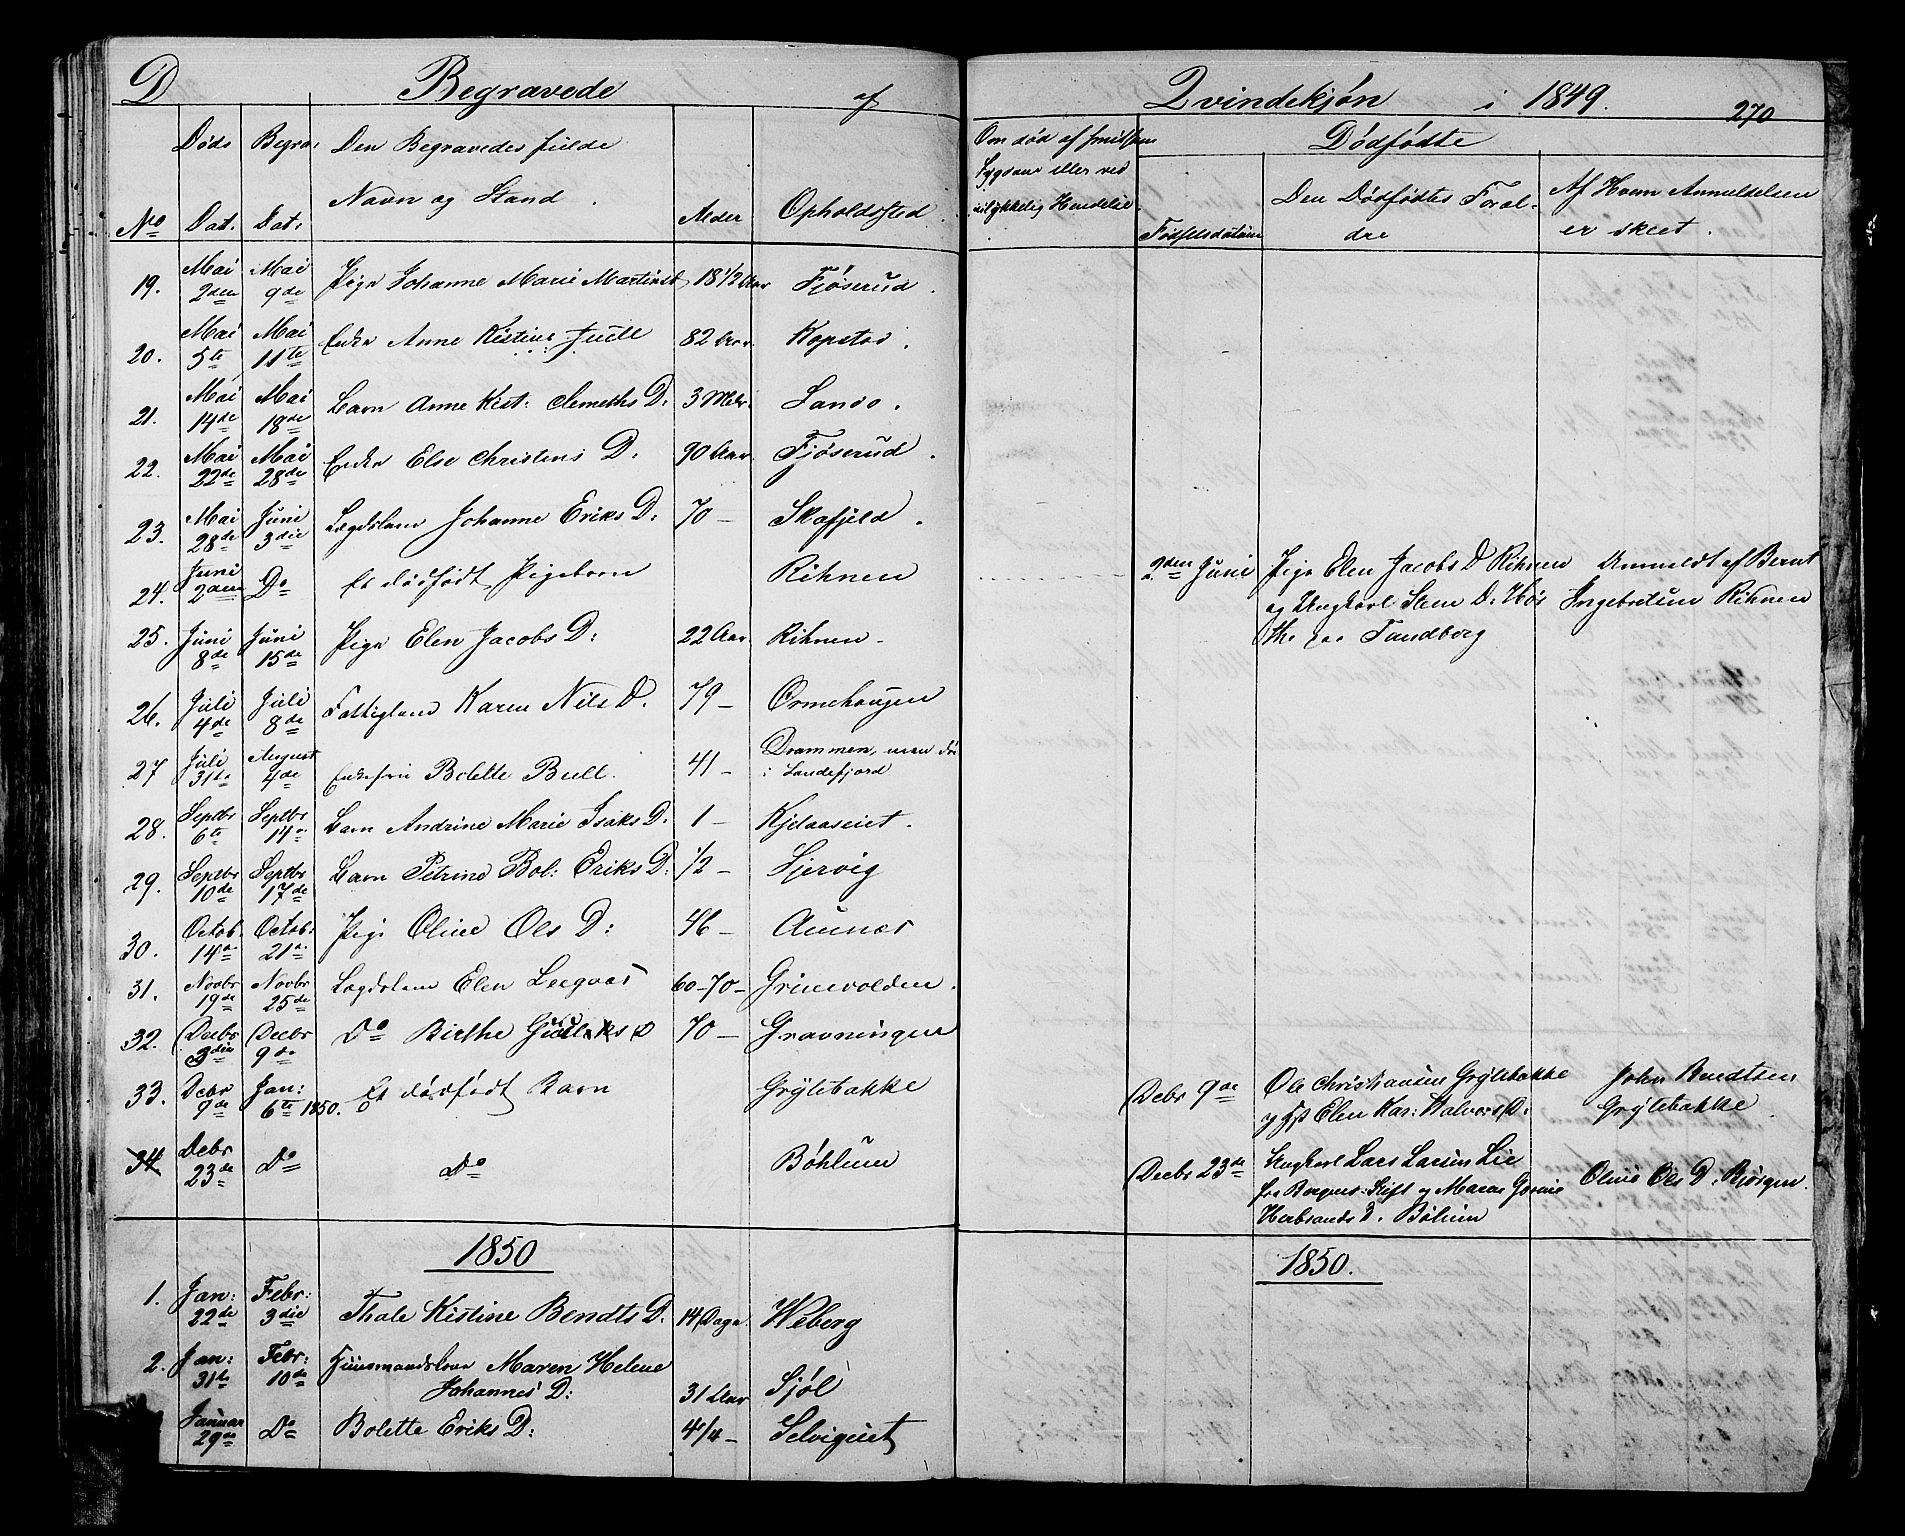 D Begravede af Qvindekjøn i 1849. 270
Døds Begra: Den Begravedes fulde Om død af
Dødfødte
No Dat. Dat: Navn og Stand. Alder Opholdssted. Sygdom eller ved ulykkelig Hendelse. Fødselsdatum Den Dødfødtes Foræl- Af Hvem Anmeldelsen
dre er skeet.
19. Mai 2den Mai 9de Pige Johanne Marie Martinsd 18 1/2 Aar Fjøserud.
20. Mai 5te Mai 11te Enke Anne Kistine Juell 82 Aar. Kopstad.
21. Mai 14de Mai 18de Barn Anne Kist: Clemeths D: 3 Mdr. Sando.
22. Mai 22de Mai 28de Enke Else Christens D. 90 Aar. Fjøserud.
23. Mai 28de Juni 3die Lægdslem Johanne Eriks D: 70 — Skafjeld.
24. Juni 2den Do Et dødfødt Pigebarn Rihnen 2den Juni Pige Elen Jacobs D Rihnen Anmeldt af Bernt
og Ungkarl Sten D: Ingebretsen Rihnen
paa Fandborg
25. Juni 8de Juni 15de Pige Elen Jacobs D: 22 Aar. Rihnen.
26. Juli 4de Juli 8de Fattiglem Karen Nils D. 79 — Ormehaugen
27 Juli 31te August 4de Bolette Bull. 41 — Drammen, men død
i Sandefjord
28. Septbr 6te Septbr 14de Barn Andrine Marie Isaks D. 1 — Kjelaaseiet.
29. Septbr 10de Septbr 17de Barn Petrine Bol: Eriks D: 1/2 — Sjervig
30. Octob. 14de Octob: 21de Pige Oline Ols D: 46 — Aunæs
31. Novbr 19de Novbr 25de Lægdslem Elen Leegaas 60–70 — Grinevolden.
32. Decbr 3die Decbr 9de Do Birthe Gulaks D 70 — Gravningen
33. Debr 9de Jan: 6te 1850. Et dødfødt Barn Grÿtebakke Debr 9de Ole Christiansen Grÿtebakke John Bendtsen
og Elen Kar: Halvors D: Grÿtebakke.
34 Debr 23de Do Do Bøhlum Decbr 23de Ungkarl Lars Larsen Lie Oline Ols D. Bjørgen.
fra Bergens Stift og Maren
Herbrands D. Bøhum
1850 1850.
1. Jan: 22de Febr: 3die Thale Kistine Bendts D. 14 Dage. Weberg
2. Jan: 31te Febr: 10de Huusmandskone Maren Helene
Johannes D: 31 Aar Sjøl
Januar 29de Do Bolette Eriks D: 4/4 — Selvigeiet